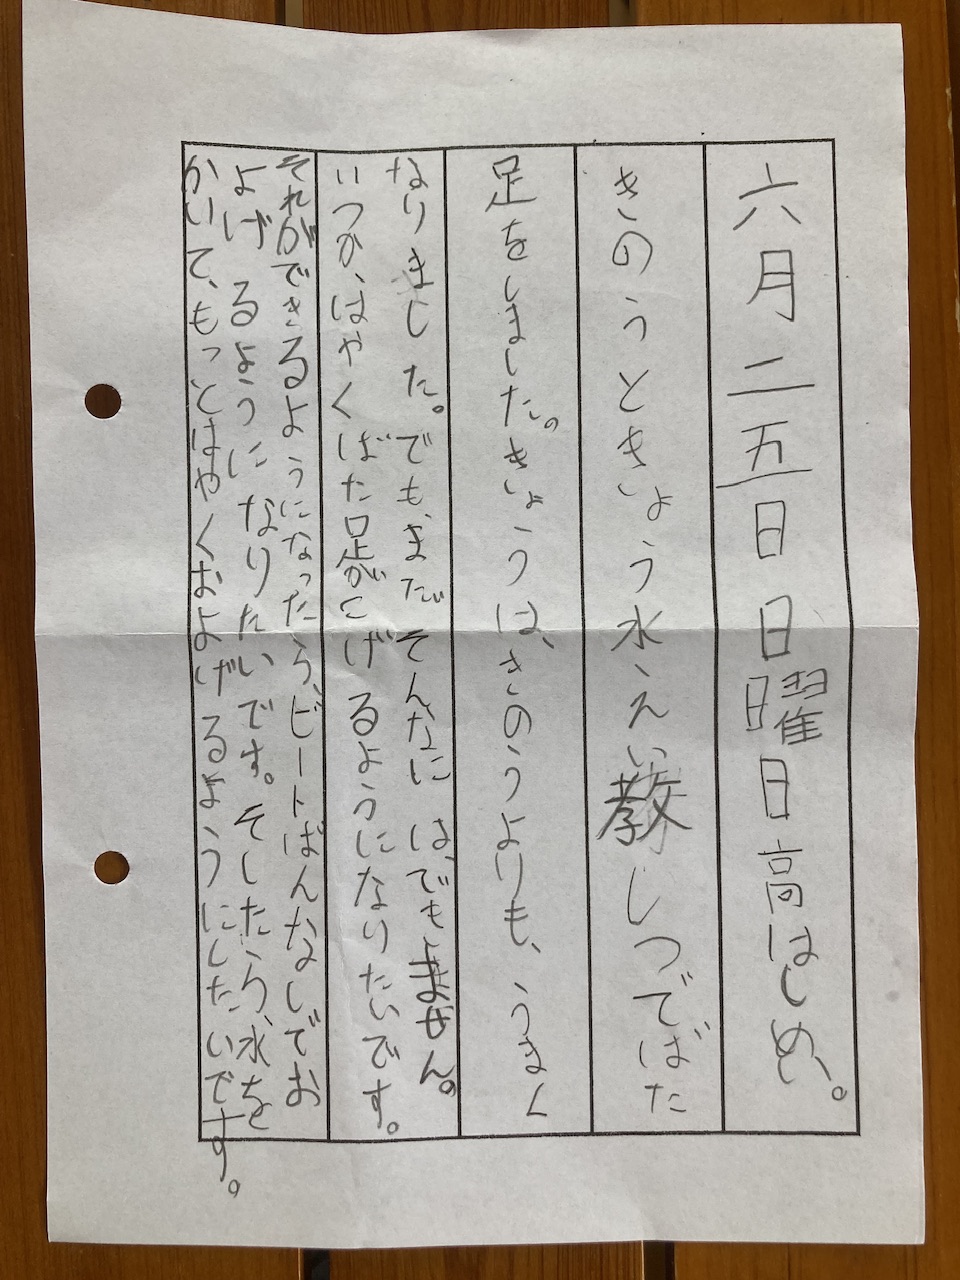 六月二五日日曜日高はじめ。
きのうときょう水えい教しつでばた
足をしました。きょうは、きのうよりも、うまく
なりました。でも、まだそんなには、でもません。
いつか、はやくばた足がこげるようになりたいです。
それができるようになったら、ビートばんなしでお
よげるようになりたいです。そしたら、水を
かいて、もっとはやくおよげるようにしたいです。